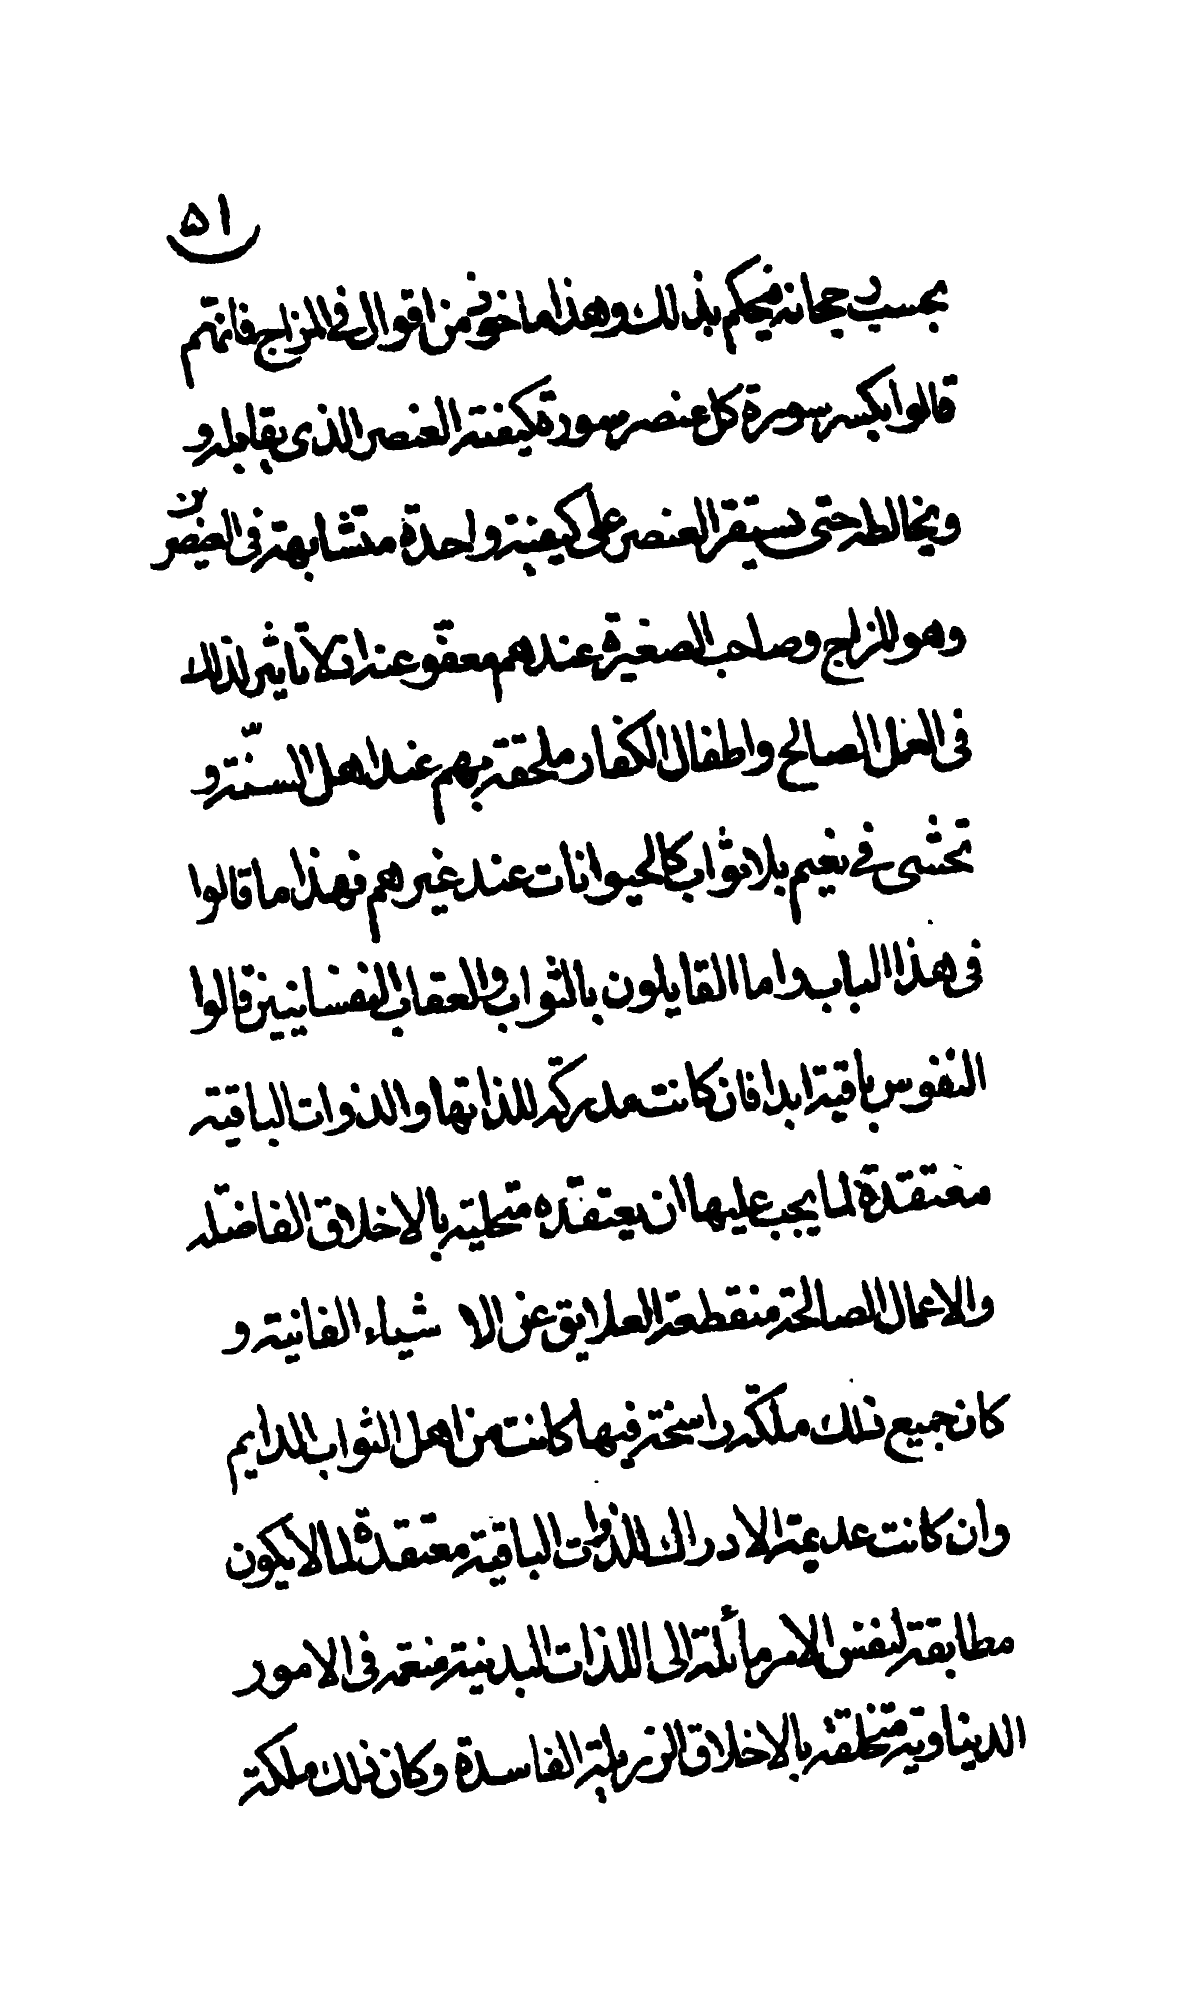 ٥١
بحسب رجحانه فيحكم بذلك وهذا ماخوذ من اقوال فى المزاج فانهم
قالوا يكسر سورة كل عنصر سورة كيفية العنصر الذى يقابله و
ويخالطه حتى يستقر العنصر على كيفية واحدة متشابهة فى العنصرين
وهو المزاج وصاحب الصغيرة عندهم معفو عنه اذ لا تاثير لذلك
فى العمل الصالح واطفال الكفار ملحقة بهم عند اهل السنّة و
تحشى فى نعيم بلا ثواب كالحيوانات عند غيرهم فهذا ما قالوا
فى هذا الباب واما القايلون بالثواب والعقاب النفسانيين قالوا
النفوس باقية ابدا فان كانت مدركة للذاتها والذوات الباقية
معتقدة لما يجب عليها ان يعتقده متحلية بالاخلاق الفاضلة
والاعمال الصالحة منقطعة العلايق عن الاشياء الفانية و
كان جميع ذلك ملكة راسخة فيها كانت من اهل الثواب الدايم
وان كانت عديمة الادراك للذوات الباقية معتقدة لما لا يكون
مطابقة لنفس الامر مائلة الى اللذات البدنية منغمة فى الامور
الدنياوية متخلقة بالاخلاق الرذيلة الفاسدة وكان ذلك ملكة